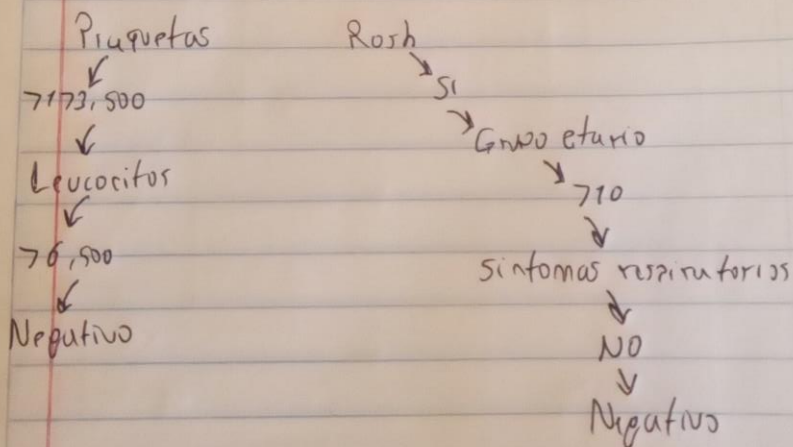 Plaquetas
>173,500
Leucocitos
>6,500
Negativo
Rash
Si
Grupo etario
>10
Sintomas respiratorios
NO
Negativo